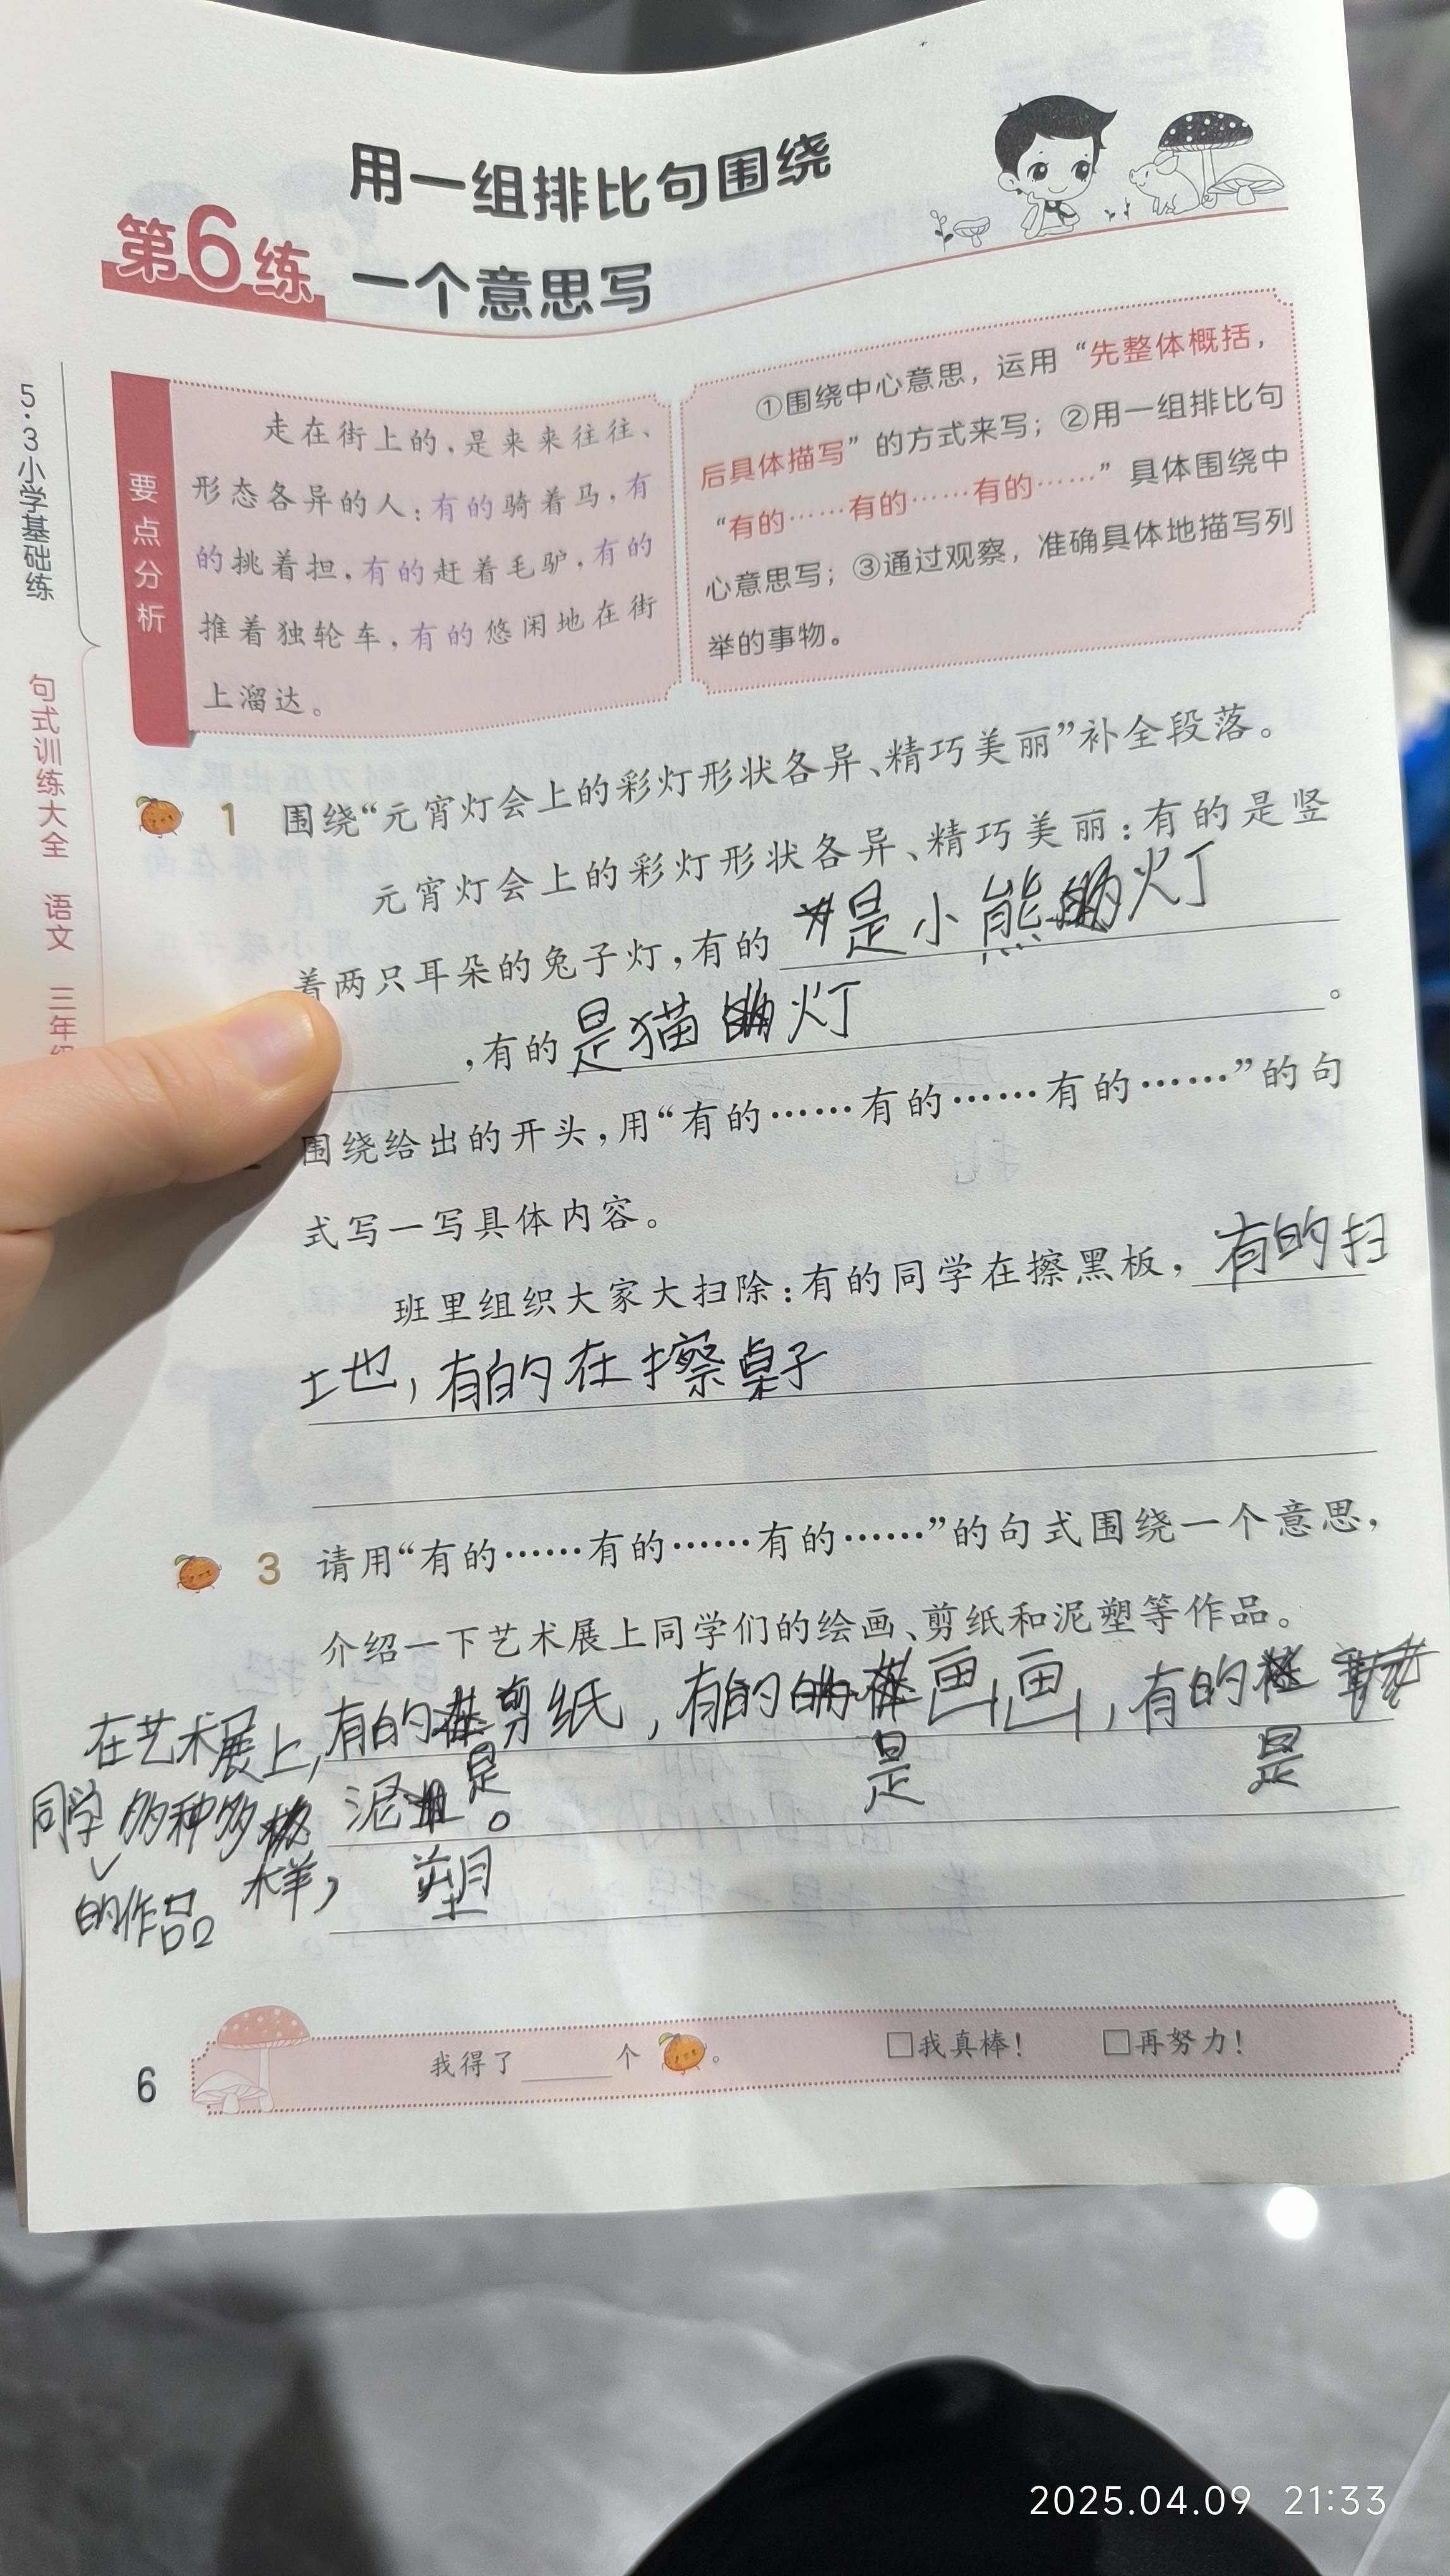 用一组排比句围绕
第6练 一个意思写
5·3小学基础练 句式训练大全 语文 三年级
要点分析
走在街上的,是来来往往、
形态各异的人:有的骑着马,有
的挑着担,有的赶着毛驴,有的
推着独轮车,有的悠闲地在街
上溜达。
①围绕中心意思，运用“先整体概括，
后具体描写”的方式来写；②用一组排比句
“有的……有的……有的……”具体围绕中
心意思写；③通过观察，准确具体地描写列
举的事物。
1 围绕“元宵灯会上的彩灯形状各异、精巧美丽”补全段落。
元宵灯会上的彩灯形状各异、精巧美丽:有的是竖
着两只耳朵的兔子灯,有的是小熊灯
,有的是猫灯。
围绕给出的开头,用“有的……有的……有的……”的句
式写一写具体内容。
班里组织大家大扫除:有的同学在擦黑板,有的扫
地,有的在擦桌子
3 请用“有的……有的……有的……”的句式围绕一个意思,
介绍一下艺术展上同学们的绘画、剪纸和泥塑等作品。
在艺术展上,有的剪纸,有的画画,有的
是 是 是
同学 多种多 泥。
的作品 样, 塑
6
我得了 个 。 □我真棒! □再努力!
2025.04.09 21:33